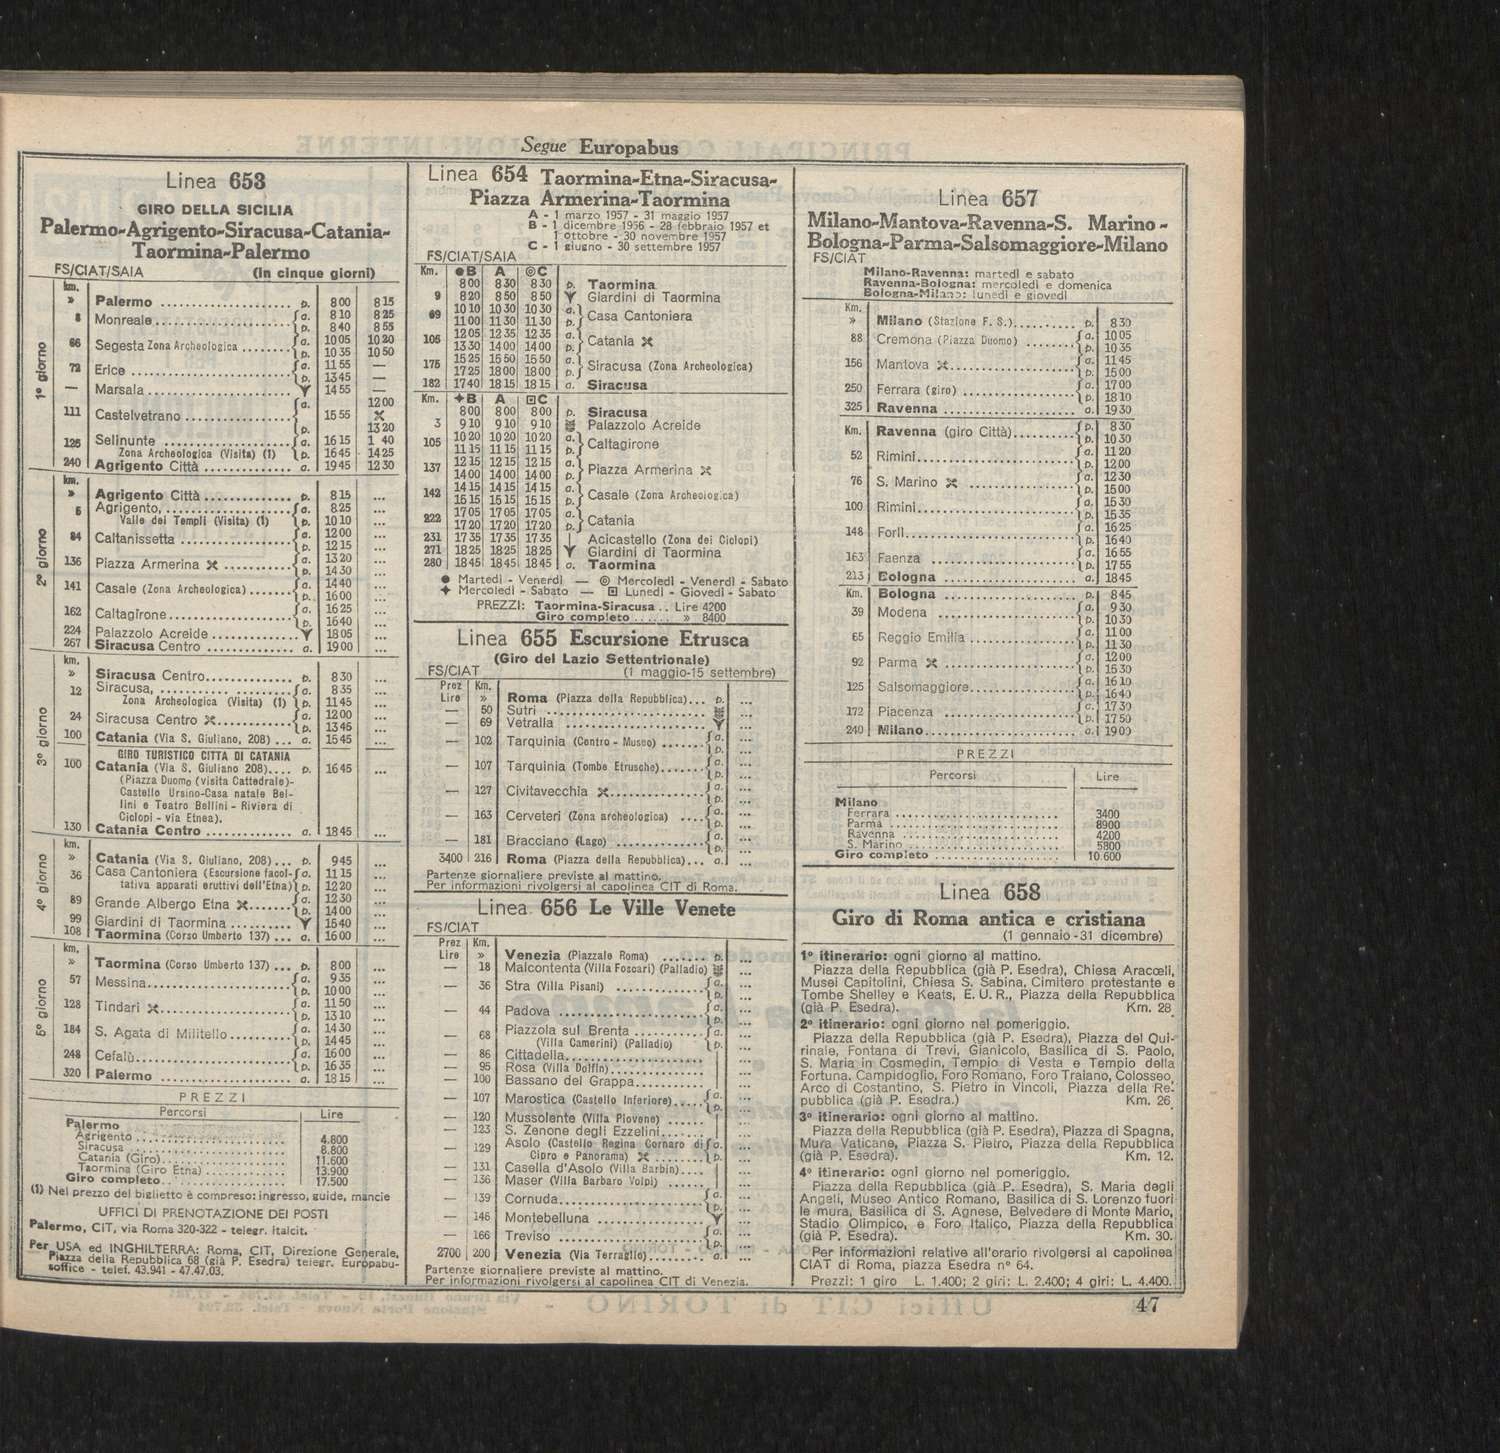 Segue Europabus
Linea 653
GIRO DELLA SICILIA
Palermo-Agrigento-Siracusa-Catania-
Taormina-Palermo
FS/CIAT/SAIA (In cinque giorni)
km.
1º giorno
» Palermo p. 8 00 8 15
8 Monreale a. 8 10 8 25
p. 8 40 8 55
66 Segesta Zona Archeologica a. 10 05 10 20
p. 10 35 10 50
72 Erice a. 11 55 —
p. 13 45 —
— Marsala 14 55 —
111 Castelvetrano a. 15 55 12 00
p. 13 20
126 Selinunte a. 16 15 1 40
Zona Archeologica (Visita) (1) p. 16 45 14 25
240 Agrigento Città a. 19 45 12 30
km.
2º giorno
» Agrigento Città p. 8 15 ...
6 Agrigento, a. 8 25 ...
Valle dei Templi (Visita) (1) p. 10 10 ...
84 Caltanissetta a. 12 00 ...
p. 12 15 ...
136 Piazza Armerina a. 13 20 ...
p. 14 30 ...
141 Casale (Zona Archeologica) a. 14 40 ...
p. 16 00 ...
162 Caltagirone a. 16 25 ...
p. 16 40 ...
224 Palazzolo Acreide 18 05 ...
267 Siracusa Centro a. 19 00 ...
km.
3º giorno
» Siracusa Centro p. 8 30 ...
12 Siracusa, a. 8 35 ...
Zona Archeologica (Visita) (1) p. 11 45 ...
24 Siracusa Centro a. 12 00 ...
p. 13 45 ...
100 Catania (Via S. Giuliano, 208) a. 15 45 ...
GIRO TURISTICO CITTA DI CATANIA
100 Catania (Via S. Giuliano 208) p. 16 45 ...
(Piazza Duomo (visita Cattedrale)-
Castello Ursino-Casa natale Bel-
lini e Teatro Bellini - Riviera di
Ciclopi - via Etnea).
130 Catania Centro a. 18 45 ...
4º giorno
» Catania (Via S. Giuliano, 208) p. 9 45 ...
36 Casa Cantoniera (Escursione facol- a. 11 15 ...
tativa apparati eruttivi dell'Etna) p. 12 20 ...
89 Grande Albergo Etna a. 12 30 ...
p. 14 00 ...
99 Giardini di Taormina 15 40 ...
108 Taormina (Corso Umberto 137) a. 16 00 ...
km.
5º giorno
» Taormina (Corso Umberto 137) p. 8 00 ...
57 Messina a. 9 35 ...
p. 10 00 ...
128 Tindari a. 11 50 ...
p. 13 10 ...
184 S. Agata di Militello a. 14 30 ...
p. 14 45 ...
248 Cefalù a. 16 00 ...
p. 16 35 ...
320 Palermo a. 18 15 ...
PREZZI
Percorsi Lire
Palermo
Agrigento 4.800
Siracusa 8.800
Catania (Giro) 11.600
Taormina (Giro Etna) 13.900
Giro completo 17.500
(1) Nel prezzo del biglietto è compreso: ingresso, guide, mancie
UFFICI DI PRENOTAZIONE DEI POSTI
Palermo, CIT, via Roma 320-322 - telegr. italcit.
Per USA ed INGHILTERRA: Roma, CIT, Direzione Generale,
Piazza della Repubblica 68 (già P. Esedra) telegr. Europabu-
soffice - telef. 43.941 - 47.47.03.
Linea 654 Taormina-Etna-Siracusa-
Piazza Armerina-Taormina
A - 1 marzo 1957 - 31 maggio 1957
B - 1 dicembre 1956 - 28 febbraio 1957 et
1 ottobre - 30 novembre 1957
C - 1 giugno - 30 settembre 1957
FS/CIAT/SAIA
Km. ●B A ◎C
8 00 8 30 8 30 p. Taormina
9 8 20 8 50 8 50 Giardini di Taormina
69 10 10 10 30 10 30 a. Casa Cantoniera
11 00 11 30 11 30 p.
106 12 05 12 35 12 35 a. Catania
13 30 14 00 14 00 p.
175 15 25 15 50 15 50 a. Siracusa (Zona Archeologica)
17 25 18 00 18 00 p.
182 17 40 18 15 18 15 a. Siracusa
Km. ✦B A ⊡C
8 00 8 00 8 00 p. Siracusa
3 9 10 9 10 9 10 Palazzolo Acreide
105 10 20 10 20 10 20 a. Caltagirone
11 15 11 15 11 15 p.
137 12 15 12 15 12 15 a. Piazza Armerina
14 00 14 00 14 00 p.
142 14 15 14 15 14 15 a. Casale (Zona Archeologica)
15 15 15 15 15 15 p.
222 17 05 17 05 17 05 a. Catania
17 20 17 20 17 20 p.
231 17 35 17 35 17 35 Acicastello (Zona dei Ciclopi)
271 18 25 18 25 18 25 Giardini di Taormina
280 18 45 18 45 18 45 a. Taormina
● Martedì - Venerdì — ◎ Mercoledì - Venerdì - Sabato
✦ Mercoledì - Sabato — ⊡ Lunedì - Giovedì - Sabato
PREZZI: Taormina-Siracusa .. Lire 4200
Giro completo ...... » 8400
Linea 655 Escursione Etrusca
(Giro del Lazio Settentrionale)
FS/CIAT (1 maggio-15 settembre)
Prez Km.
Lire » Roma (Piazza della Repubblica)... p. ...
— 50 Sutri ...
— 69 Vetralla ...
— 102 Tarquinia (Centro - Museo) a. ...
p. ...
— 107 Tarquinia (Tombe Etrusche) a. ...
p. ...
— 127 Civitavecchia a. ...
p. ...
— 163 Cerveteri (Zona archeologica) a. ...
p. ...
— 181 Bracciano (Lago) a. ...
p. ...
3400 216 Roma (Piazza della Repubblica)... a. ...
Partenze giornaliere previste al mattino.
Per informazioni rivolgersi al capolinea CIT di Roma.
Linea 656 Le Ville Venete
FS/CIAT
Prez Km.
Lire » Venezia (Piazzale Roma) p. ...
— 18 Malcontenta (Villa Foscari) (Palladio) ...
— 36 Stra (Villa Pisani) a. ...
p. ...
— 44 Padova a. ...
p. ...
— 68 Piazzola sul Brenta a. ...
(Villa Camerini) (Palladio) p. ...
— 86 Cittadella ...
— 95 Rosa (Villa Dolfin) ...
— 100 Bassano del Grappa ...
— 107 Marostica (Castello Inferiore) a. ...
p. ...
— 120 Mussolente (Villa Piovene) ...
— 123 S. Zenone degli Ezzelini ...
— 129 Asolo (Castello Regina Cornaro di a. ...
Cipro e Panorama) p. ...
— 131 Casella d'Asolo (Villa Barbin) ...
— 136 Maser (Villa Barbaro Volpi) ...
— 139 Cornuda a. ...
p. ...
— 146 Montebelluna ...
— 166 Treviso a. ...
p. ...
2700 200 Venezia (Via Terraglio) a. ...
Partenze giornaliere previste al mattino.
Per informazioni rivolgersi al capolinea CIT di Venezia.
Linea 657
Milano-Mantova-Ravenna-S. Marino-
Bologna-Parma-Salsomaggiore-Milano
FS/CIAT
Milano-Ravenna: martedì e sabato
Ravenna-Bologna: mercoledì e domenica
Bologna-Milano: lunedì e giovedì
Km.
» Milano (Stazione F. S.) p. 8 30
88 Cremona (Piazza Duomo) a. 10 05
p. 10 35
156 Mantova a. 11 45
p. 15 00
250 Ferrara (giro) a. 17 00
p. 18 10
325 Ravenna a. 19 30
Km. Ravenna (giro Città) p. 8 30
p. 10 30
52 Rimini a. 11 20
p. 12 00
76 S. Marino a. 12 30
p. 15 00
100 Rimini a. 15 30
p. 15 35
148 Forlì a. 16 25
p. 16 40
163 Faenza a. 16 55
p. 17 55
213 Bologna a. 18 45
Km. Bologna p. 8 45
39 Modena a. 9 30
p. 10 30
65 Reggio Emilia a. 11 00
p. 11 30
92 Parma a. 12 00
p. 15 30
125 Salsomaggiore a. 16 10
p. 16 40
172 Piacenza a. 17 30
p. 17 50
240 Milano a. 19 00
PREZZI
Percorsi Lire
Milano
Ferrara 3400
Parma 8900
Ravenna 4200
S. Marino 5800
Giro completo 10.600
Linea 658
Giro di Roma antica e cristiana
(1 gennaio - 31 dicembre)
1º itinerario: ogni giorno al mattino.
Piazza della Repubblica (già P. Esedra), Chiesa Aracœli,
Musei Capitolini, Chiesa S. Sabina, Cimitero protestante e
Tombe Shelley e Keats, E. U. R., Piazza della Repubblica
(già P. Esedra). Km. 28
2º itinerario: ogni giorno nel pomeriggio.
Piazza della Repubblica (già P. Esedra), Piazza del Qui-
rinale, Fontana di Trevi, Gianicolo, Basilica di S. Paolo,
S. Maria in Cosmedin, Tempio di Vesta e Tempio della
Fortuna, Campidoglio, Foro Romano, Foro Traiano, Colosseo,
Arco di Costantino, S. Pietro in Vincoli, Piazza della Re-
pubblica (già P. Esedra.) Km. 26
3º itinerario: ogni giorno al mattino.
Piazza della Repubblica (già P. Esedra), Piazza di Spagna,
Mura Vaticane, Piazza S. Pietro, Piazza della Repubblica
(già P. Esedra). Km. 12.
4º itinerario: ogni giorno nel pomeriggio.
Piazza della Repubblica (già P. Esedra), S. Maria degli
Angeli, Museo Antico Romano, Basilica di S. Lorenzo fuori
le mura, Basilica di S. Agnese, Belvedere di Monte Mario,
Stadio Olimpico, e Foro Italico, Piazza della Repubblica
(già P. Esedra). Km. 30.
Per informazioni relative all'orario rivolgersi al capolinea
CIAT di Roma, piazza Esedra nº 64.
Prezzi: 1 giro L. 1.400; 2 giri: L. 2.400; 4 giri: L. 4.400.
47